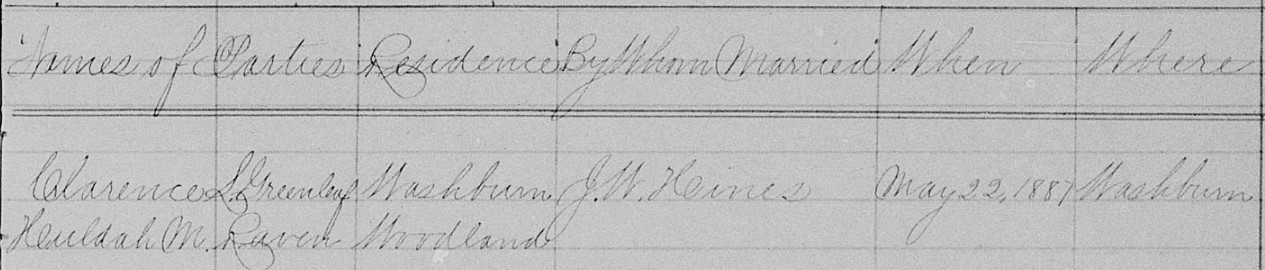 Names of Parties Residence By Whom Married When Where
Clarence L. Greenleaf Washburn J. W. Hines May 22, 1887 Washburn
Heuldah M. Raven Woodland